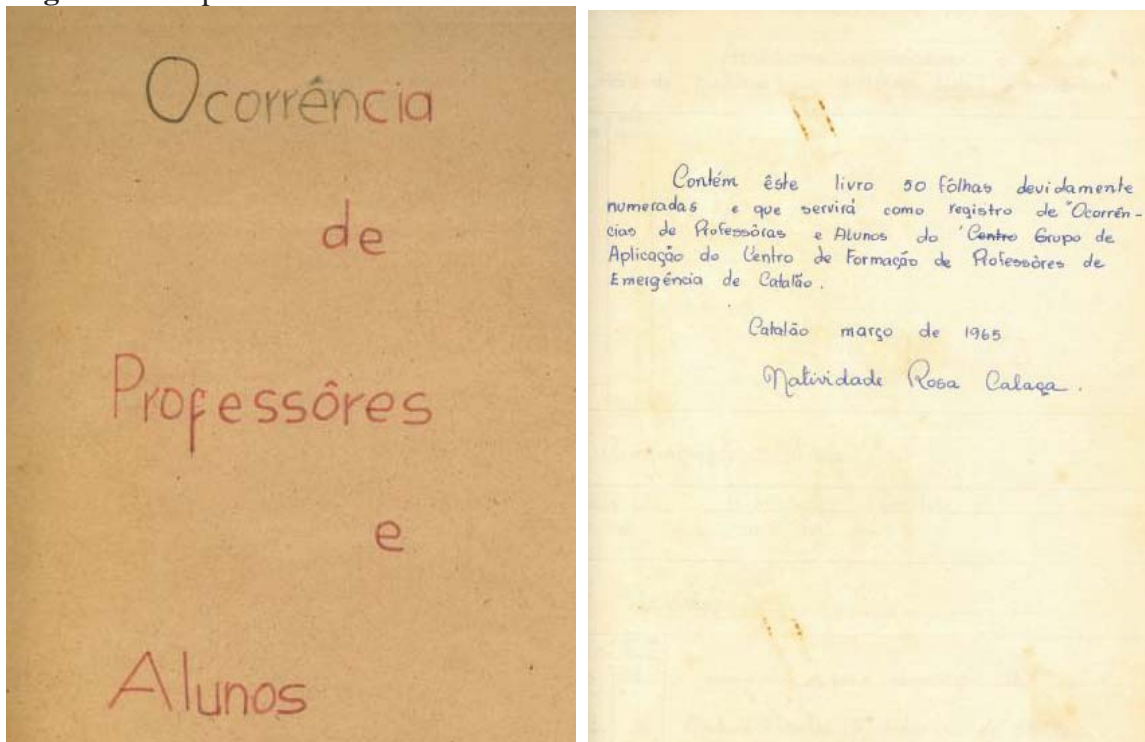 Ocorrência
de
Professôres
e
Alunos
Contém êste livro 50 fôlhas devidamente
numeradas e que servirá como registro de "Ocorrên-
cias de Professôras e Alunos do "Centro Grupo de
Aplicação do Centro de Formação de Professôres de
Emergência de Catalão.
Catalão março de 1965
Natividade Rosa Calaça.